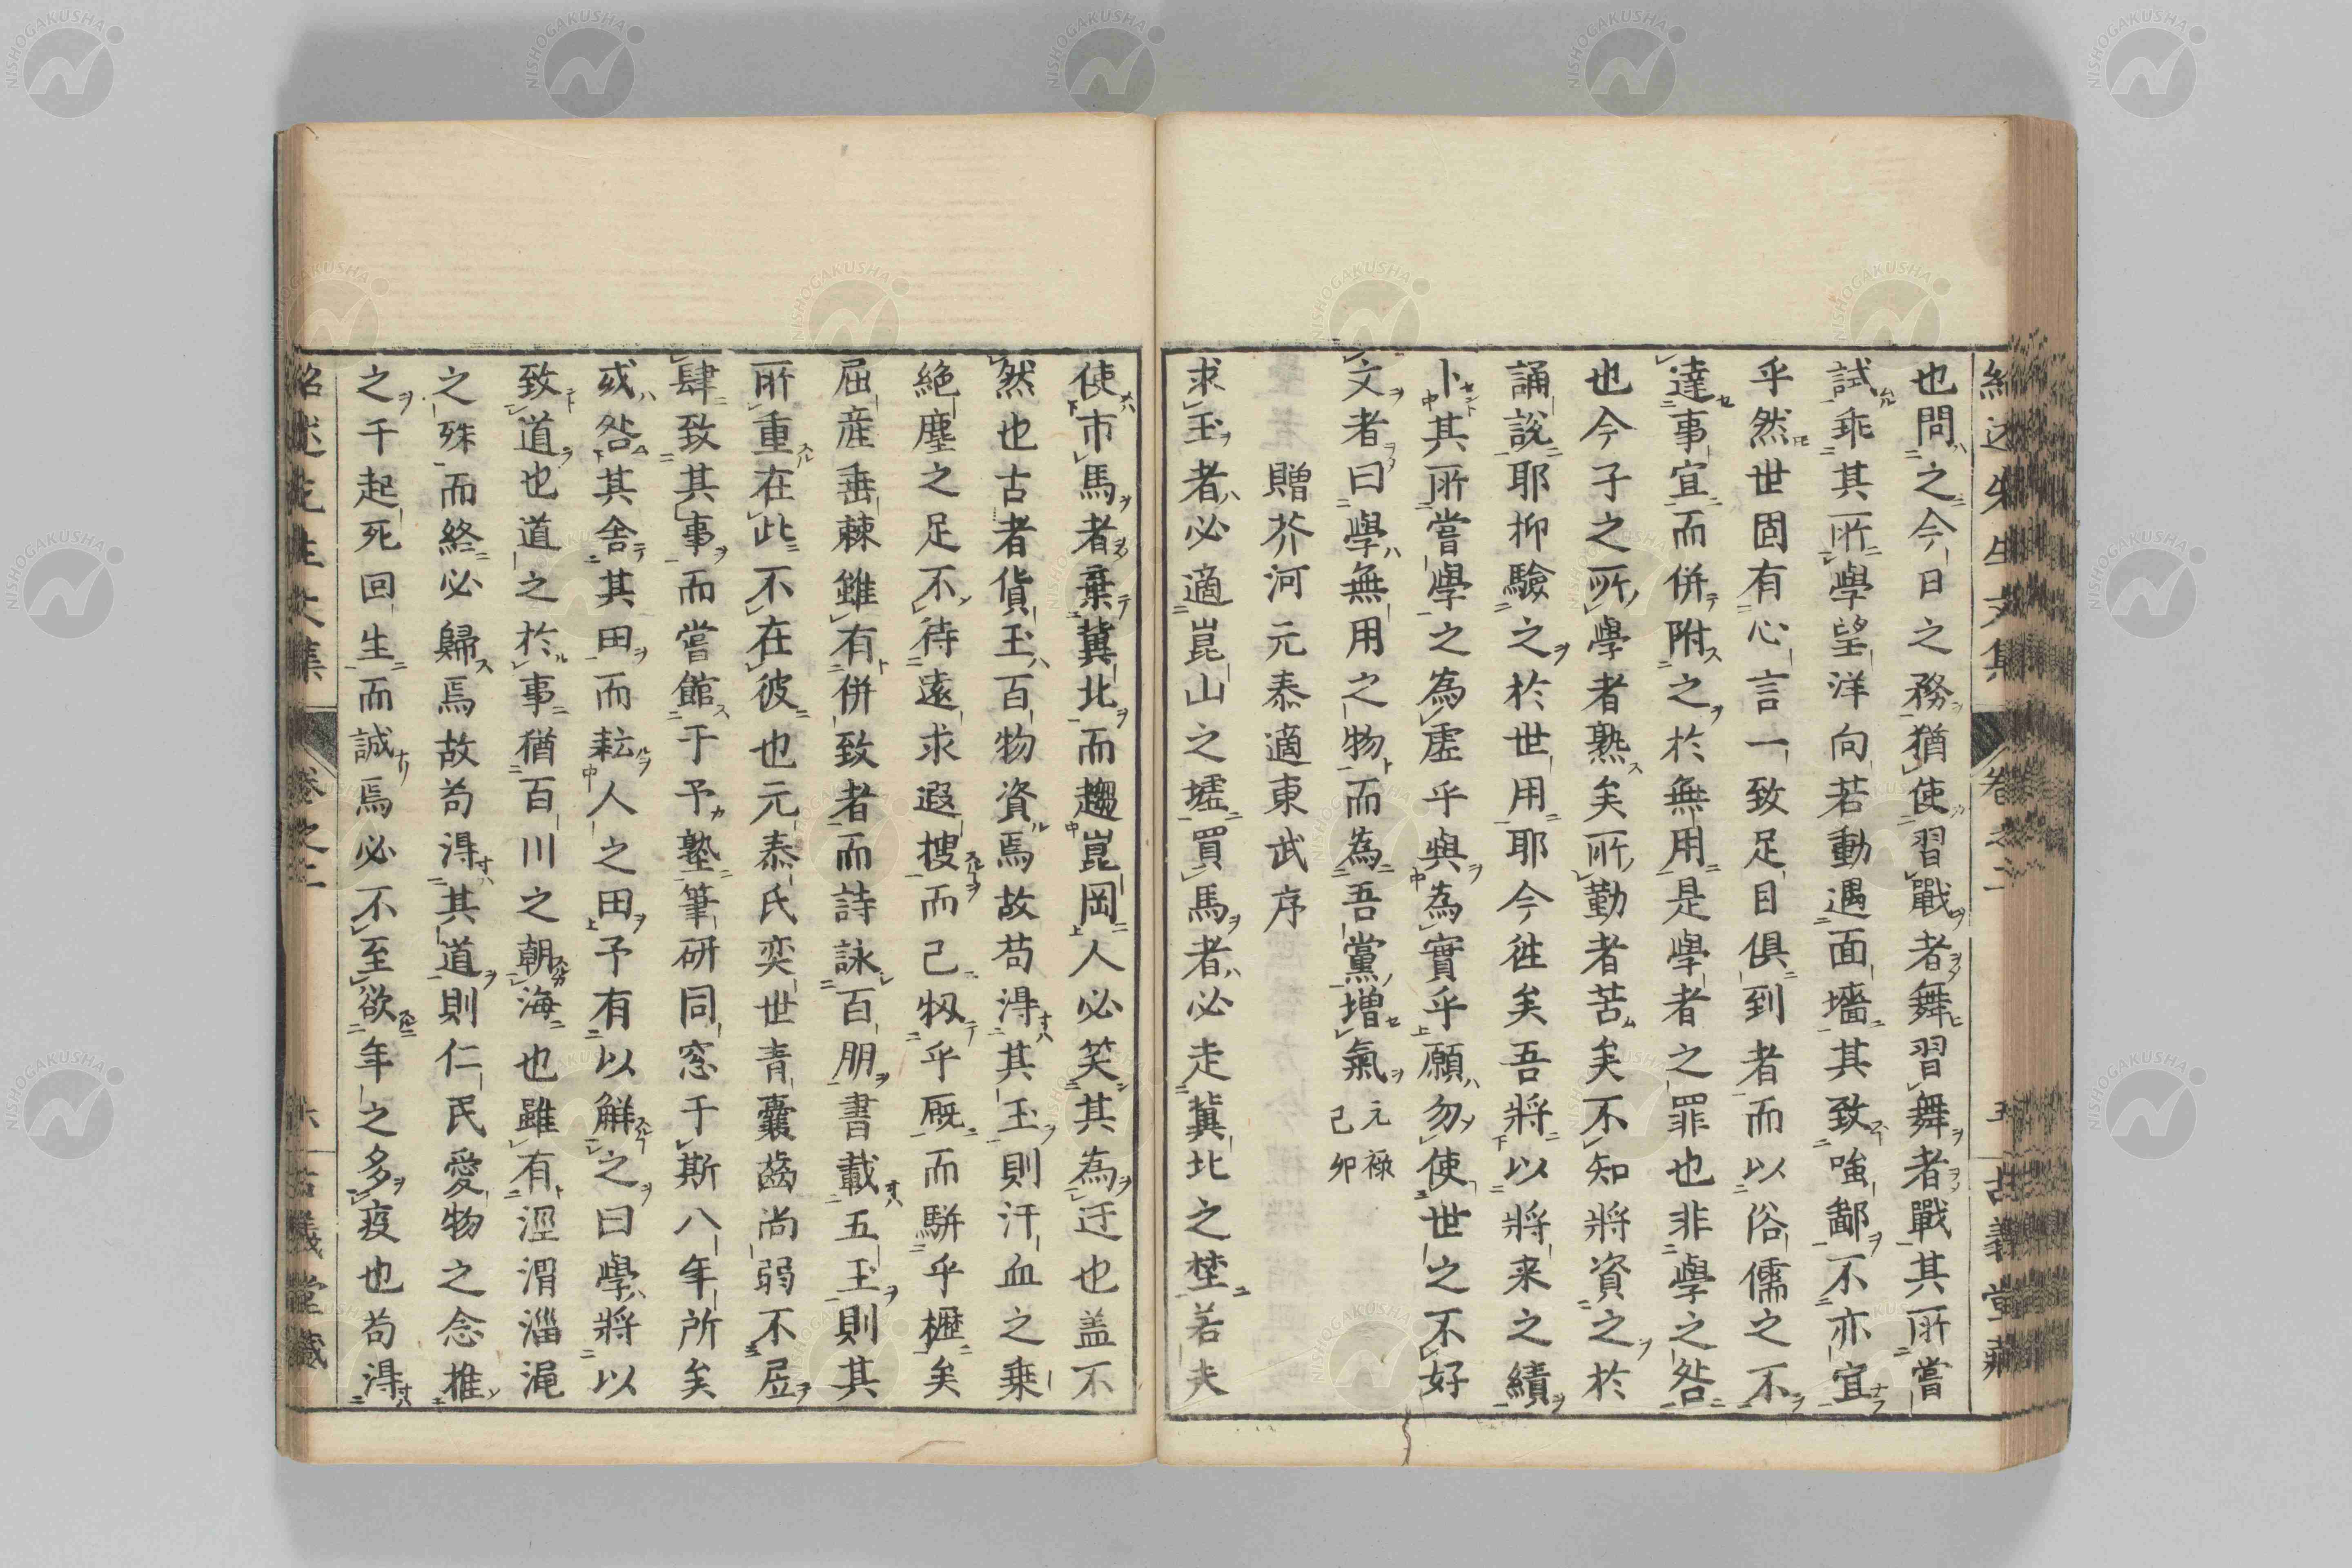 也問之今日之務猶使習戰者舞習舞者戰其所嘗
試乖其所學望洋向若動遇面墻其致嗤鄙不亦宜
乎然世固有心言一致足目俱到者而以俗儒之不
達事宜而併附之於無用是學者之罪也非學之咎
也今子之所學者熟矣所勤者苦矣不知將資之於
誦說耶抑驗之於世用耶今徃矣吾將以將来之績
卜其所嘗學之為虛乎與為實乎願勿使世之不好
文者曰學無用之物而為吾黨增氣 元禄己卯
贈芥河元泰適東武序
求玉者必適崑山之墟買馬者必走冀北之埜若夫
使市馬者棄冀北而趨崑岡人必笑其為迂也盖不
然也古者貨玉百物資焉故苟得其玉則汗血之乗
絶塵之足不待遠求遐搜而已牣乎厩而駢乎櫪矣
屈産垂棘雖有併致者而詩詠百朋書載五玉則其
所重在此不在彼也元泰氏奕世青囊齒尚弱不屑
肆致其事而嘗館于予塾筆研同窓于斯八年所矣
或咎其舍其田而耘人之田予有以解之曰學將以
致道也道之於事猶百川之朝海也雖有涇渭淄澠
之殊而終必歸焉故苟得其道則仁民愛物之念推
之千起死回生而誠焉必不至欲年之多疫也苟得
紹述先生文集 卷之二 五 古義堂藏
紹述先生文集 卷之二 六 古義堂藏
NISHOGAKUSHA